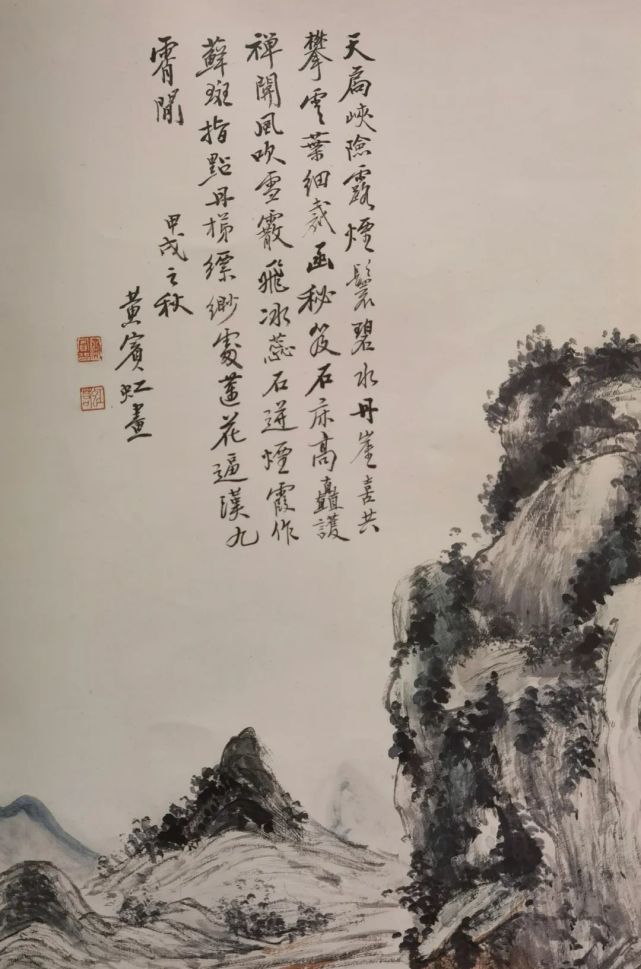 天扃峽險露煙鬟碧水丹崖喜共
攀雲葉細裁函秘笈石床高矗護
禪關風吹雪霰飛冰蕊石迸煙霞作
蘚斑指點丹梯縹緲處蓮花逼漢九
霄閒
甲戌之秋
黃賓虹畫